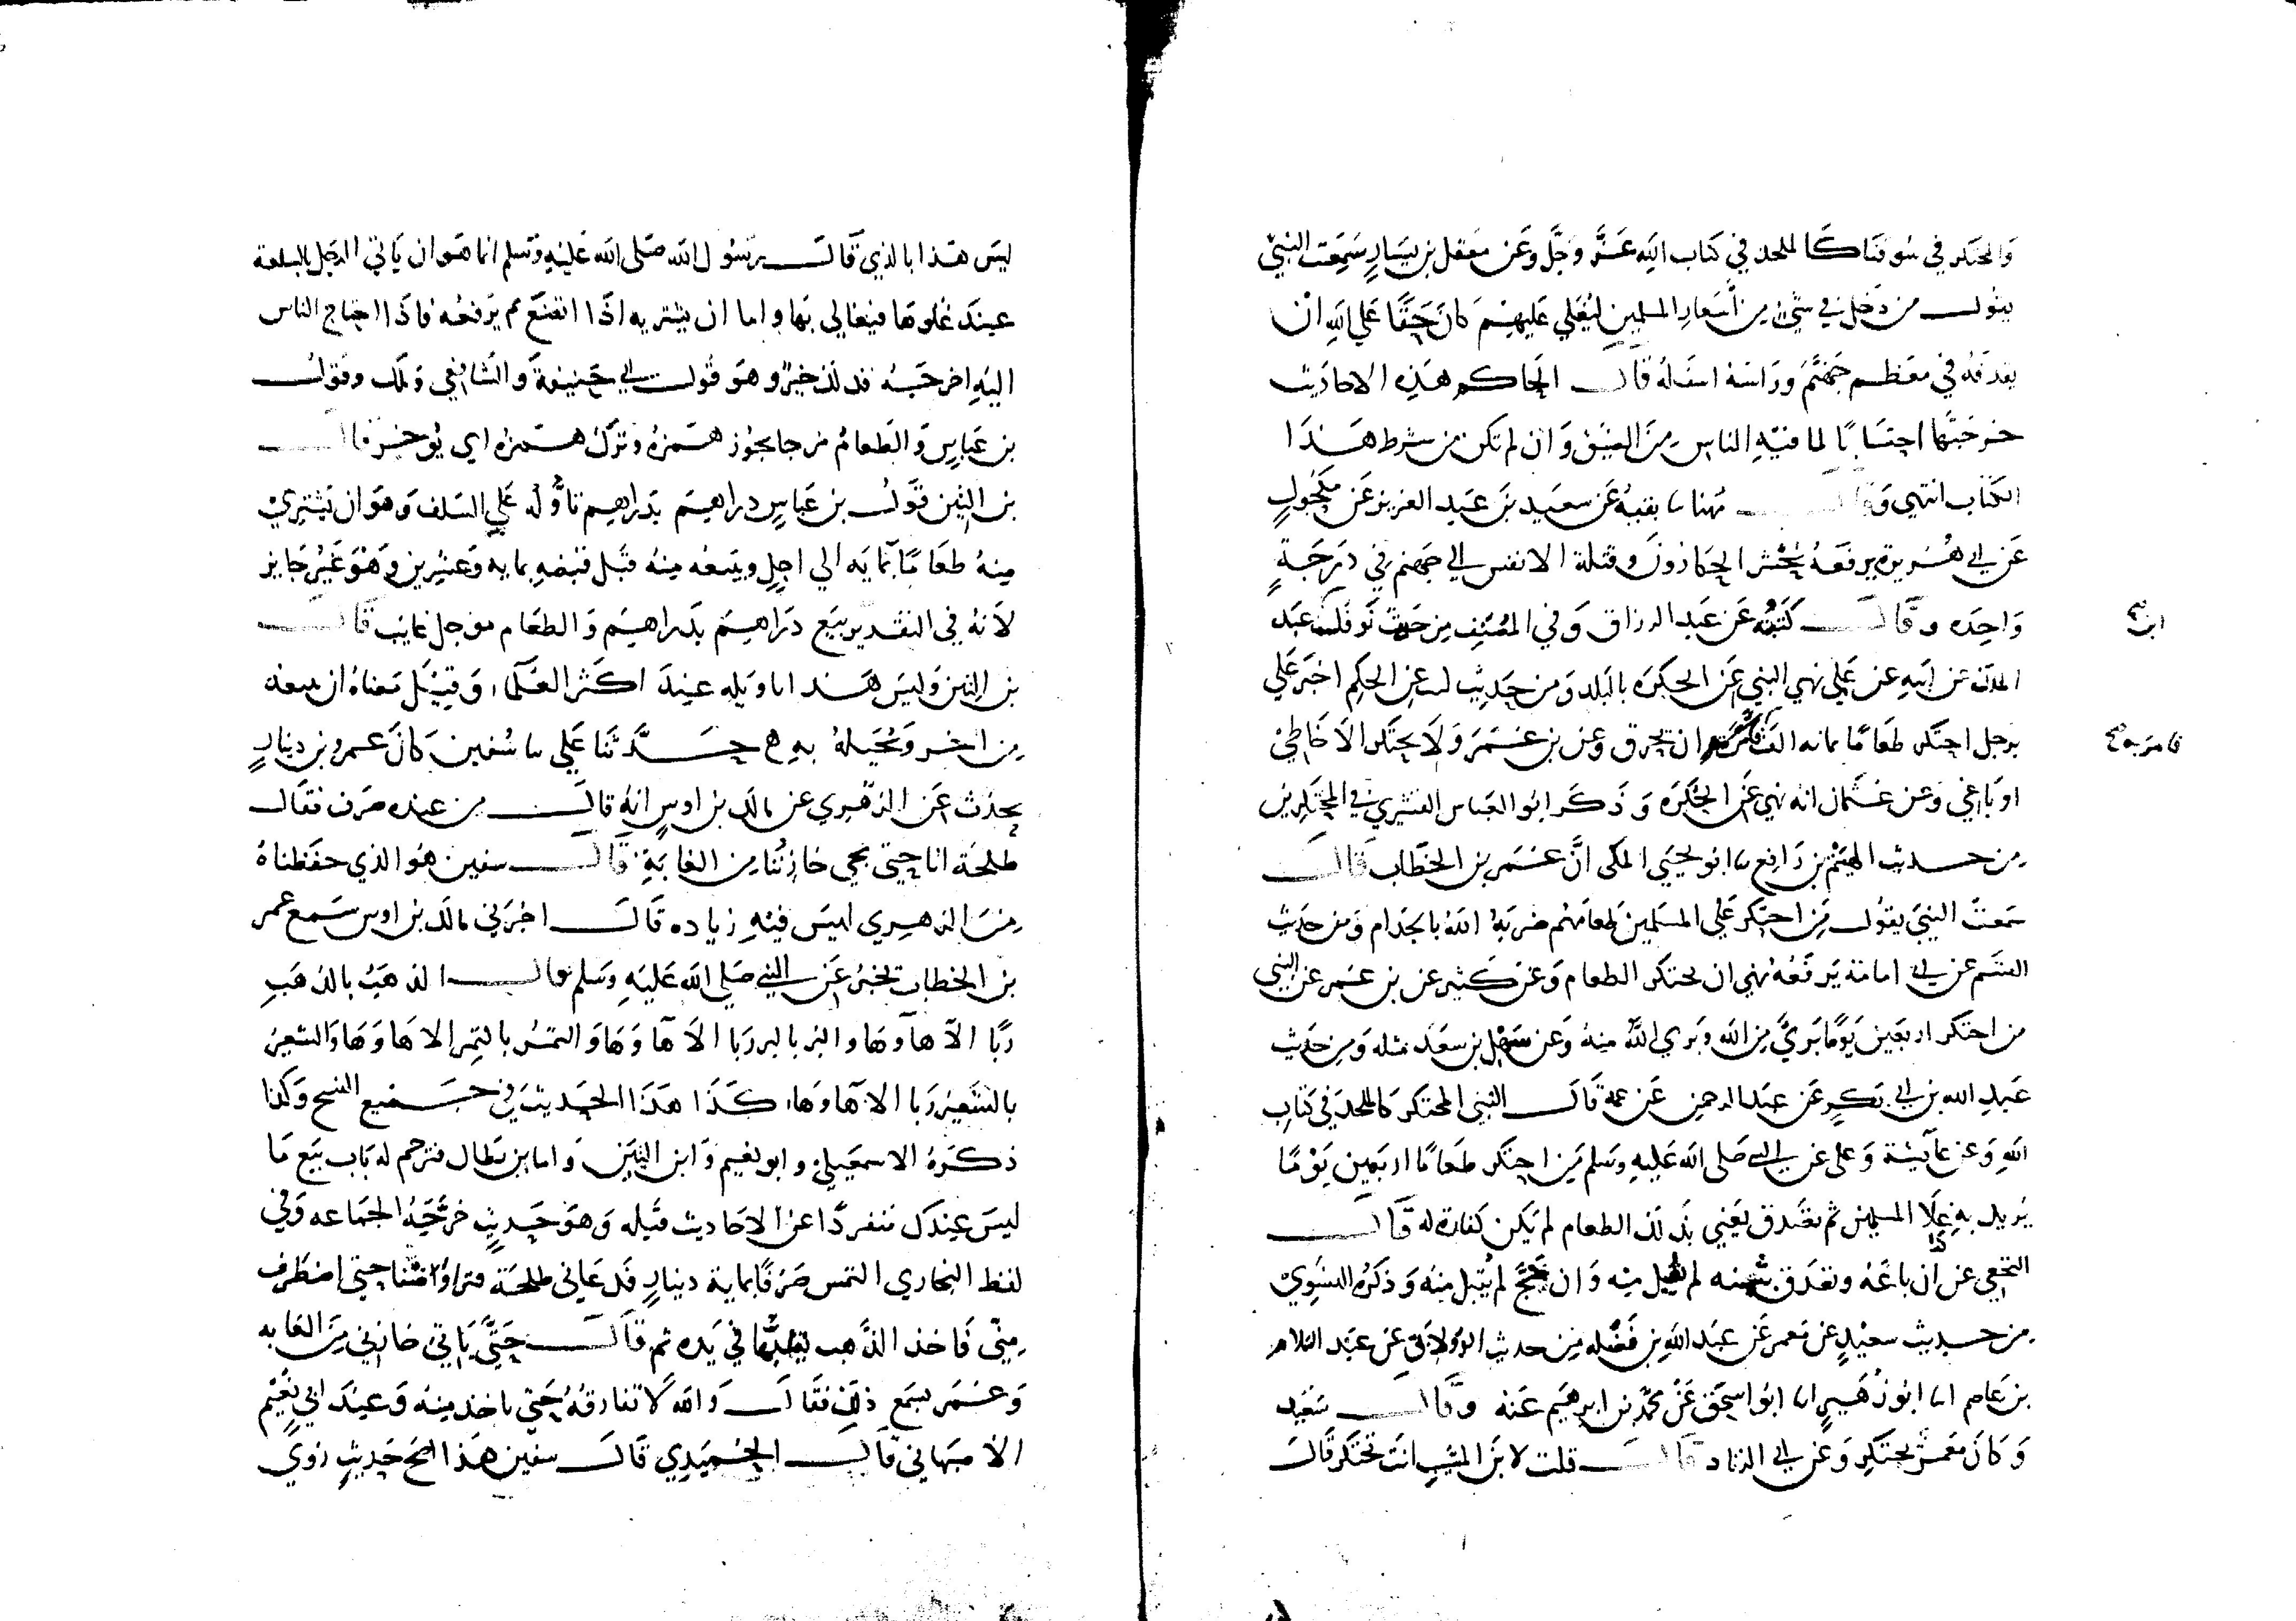 والمحتكر في سوقنا كالملحد في كتاب الله عز وجل وعن معقل بن يسار سمعت النبي
يقول من دخل في شيء من أسعار المسلمين ليغلي عليهم كان حقا علي الله ان
يقذفه في معظم جهنم وراسه اسفله قال الحاكم هذه الاحاديث
خرجتها احتسابا لما فيه الناس من الضيق وان لم تكن من شرط هذا
الكتاب انتهي وقال مهنا سا بقية عن سعيد بن عبد العزيز عن مكحول
عن ابي هريرة يرفعه يحشر الحكارون وقتلة الانفس الي جهنم في درجة
واحده وقال كتبته عن عبد الرزاق وفي المصنف من حديث نوفل بن عبد
ابن صح
الملك عن ابيه عن علي نهي النبي عن الحكره بالبلد ومن حديث ليث عن الحكم اخبر علي
برجل احتكر طعاما بمائه الف فامر به ان يحرق وعن بن عمر ولا يحتكر الا خاطئ
فامر به صح
او باغي وعن عثمان انه نهي عن الحكره وذكر ابو العباس القشيري في المحتكرين
من حديث الهيثم بن رافع سا ابو يحيي المكى ان عمر بن الخطاب قال
سمعت النبي يقول من احتكر علي المسلمين طعامهم ضربه الله بالجذام ومن حديث
القسم عن ابي امامة يرفعه نهي ان يحتكر الطعام وعن كثير عن بن عمر عن النبي
من احتكر اربعين يوما بري من الله وبري الله منه وعن سهل بن سعد مثله ومن حديث
عبد الله بن ابي بكر عن عبد الرحمن عن عمه قال النبي المحتكر كالملحد في كتاب
الله وعن عائشة وعلي عن النبي صلى الله عليه وسلم من احتكر طعاما اربعين يوما
يريد به غلا المسلمين ثم تصدق يعني بذلك الطعام لم يكن كفارة له قال
النخعي عن ان باعه وتصدق بثمنه لم يقبل منه وان حج لم يقبل منه وذكره النسوي
من حديث سعيد عن معمر عن عبد الله بن فضله من حديث الدولابي عن عبد السلام
بن عاصم اسا ابو زهير اسا ابو اسحق عن محمد بن ابرهيم عنه وقال سعيد
وكان معمر يحتكر وعن ابي الزناد قال قلت لابن المسيب انت تحتكر قال
ليس هذا بالذي قال رسول الله صلى الله عليه وسلم انما هو ان ياتي الرجل بالسلعة
عند غلوها فيغالي بها واما ان يشتريه اذا اتضع ثم يرفعه فاذا احتاج الناس
اليه اخرجه فذلك خير وهو قول ابي حنيفة والشافعي ولمك وقول
بن عباس والطعام مرجا يجوز همزه وترك همزه اي يوخر قال
بن التين قول بن عباس دراهيم بدراهيم تاوله علي السلف وهو ان يشتري
منه طعاما بمايه الي اجل ويبيعه منه قبل قبضه بمايه وعشرين وهو غير جايز
لانه في التقدير بيع دراهيم بدراهيم والطعام موجل غايب قال
بن التين وليس هذا تاويله عند اكثر العلما، وقيل معناه ان يبيعه
من اخر ويحيله به ه حدثنا علي سا سفين كان عمرو بن دينار
يحدث عن الزهري عن مالك بن اوس انه قال من عنده صرف فقال
طلحة انا حتي يجي خازننا من الغابة قال سفين هو الذي حفظناه
من الزهري ليس فيه زياده قال اخبرني مالك بن اوس سمع عمر
بن الخطاب يخبر عن النبي صلي الله عليه وسلم قال الذهب بالذهب
ربا الا ها وها والبر بالبر ربا الا ها وها والتمر بالتمر الا ها وها والشعير
بالشعير ربا الا ها وها، كذا هذا الحديث في جميع النسخ وكذا
ذكره الاسمعيلي وابو نعيم وابن التين واما بن بطال فترجم له باب بيع ما
ليس عندك منفردا عن الاحاديث قبله وهو حديث خرجه الجماعه وفي
لفظ البخاري التمس صرفا بماية دينار فدعاني طلحة فتراوضنا حتي اصطرف
مني فاخذ الذهب يقلبها في يده ثم قال حتي ياتي خازني من الغابه
وعمر يسمع ذلك فقال والله لا تفارقه حتي تاخذ منه وعند ابي نعيم
الاصبهاني قال الحميدي قال سفين هذا اصح حديث روي